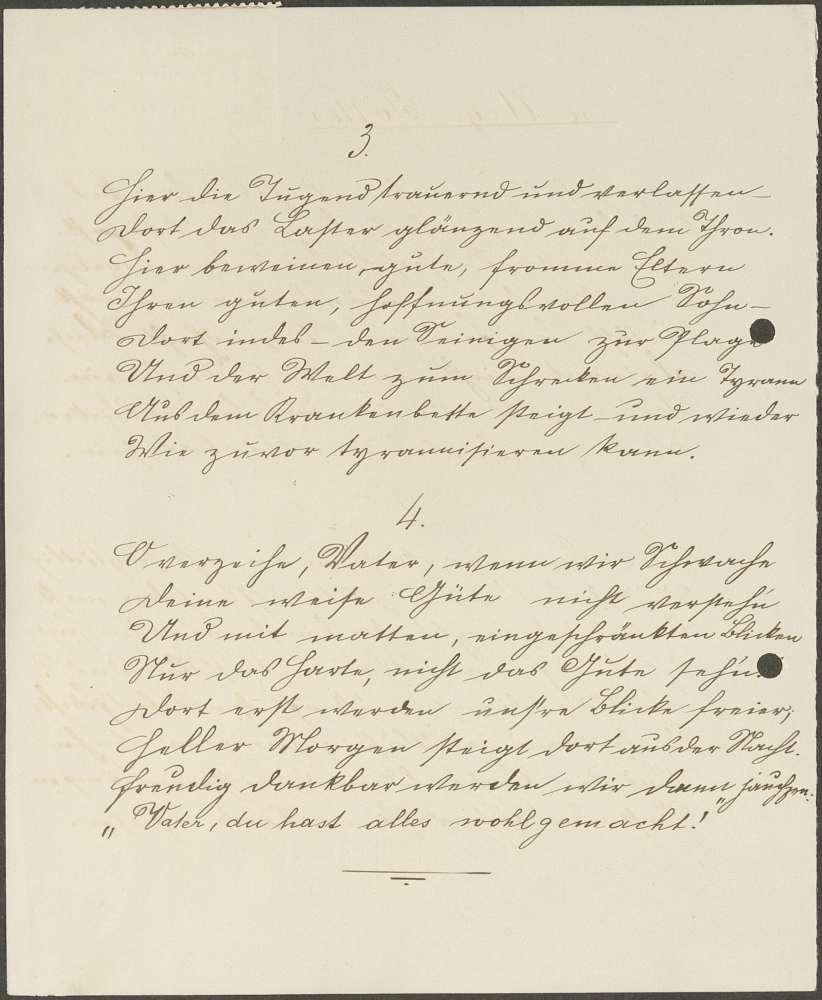 3.
Hier die Tugend trauernd und verlassen –
Dort das Laster glänzend auf dem Thron.
Hier beweinen gute, fromme Eltern
Ihren guten, hoffnungsvollen Sohn –
Dort indes – den Seinigen zur Plage
Und der Welt zum Schrecken ein Tyrann
Aus dem Krankenbette steigt – und wieder
Wie zuvor tyrannisieren kann.
4.
O verzeihe, Vater, wenn wir Schwache
Deine weise Güte nicht versteh'n
Und mit matten, eingeschränkten Blicken
Nur das Harte, nicht das Gute seh'n.
Dort erst werden uns're Blicke freier;
Heller Morgen steigt dort aus der Nacht.
Freudig dankbar werden wir dann jauchzen:
„Vater, du hast alles wohlgemacht!"